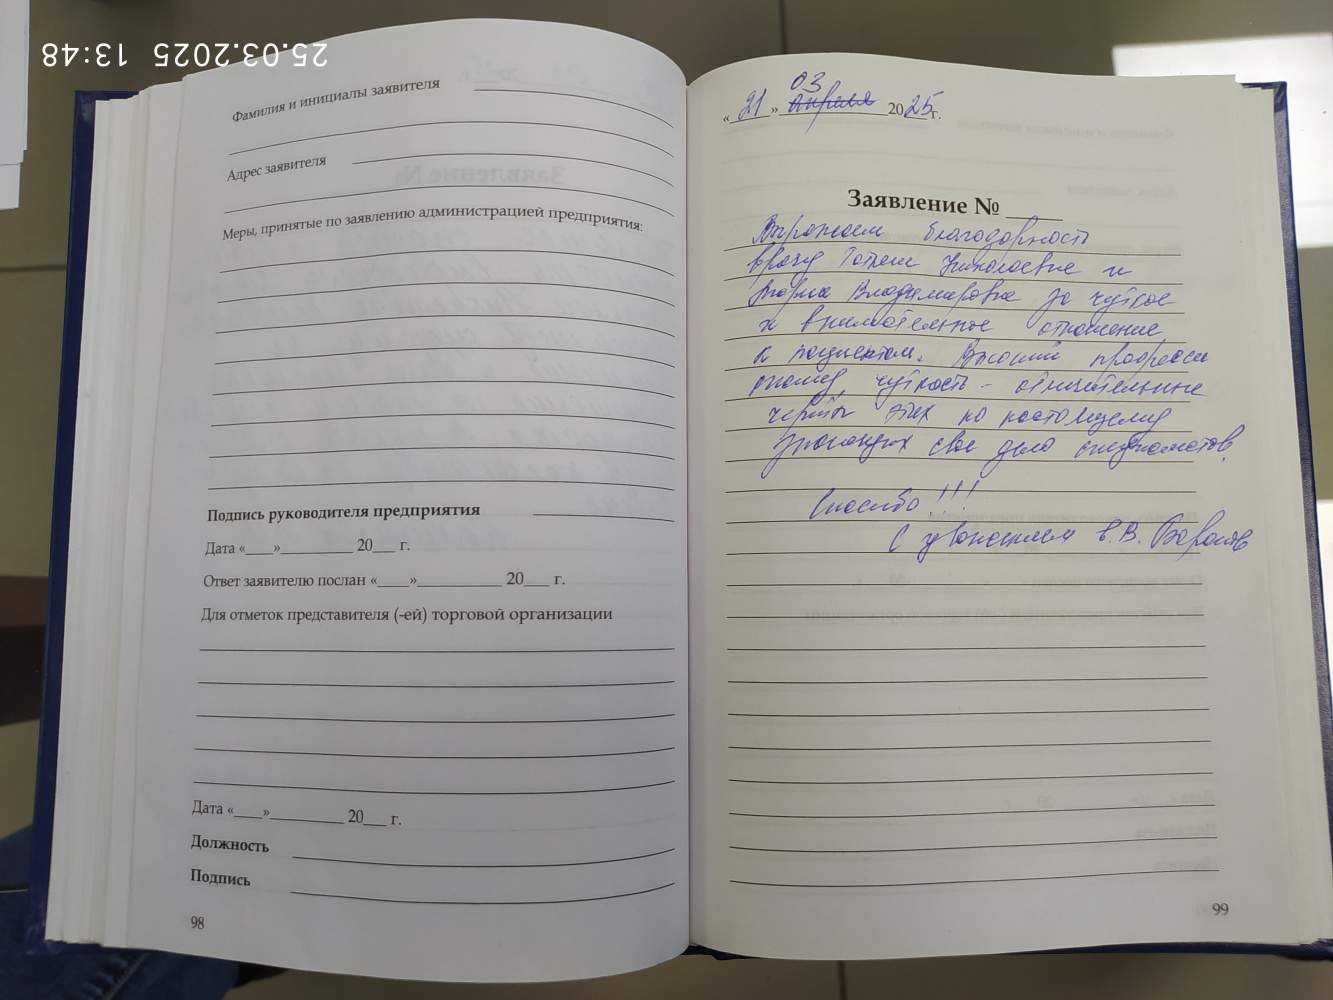 25.03.2025 13:48
Фамилия и инициалы заявителя
Адрес заявителя
Меры, принятые по заявлению администрацией предприятия:
Подпись руководителя предприятия
Дата «____»__________ 20___ г.
Ответ заявителю послан «____»__________ 20___ г.
Для отметок представителя (-ей) торговой организации
Дата «____»__________ 20___ г.
Должность
Подпись
98
03
«21» апреля 2025г.
Заявление № _____
Выражаем благодарность
врачу Николаевне и
Владимировне за чуткое
и внимательное отношение
к пациентам. Высокий професси
онализм, чуткость - отличительные
черты этих по настоящему
знающих свое дело специалистов.
Спасибо!!!
С уважением в.В.
99